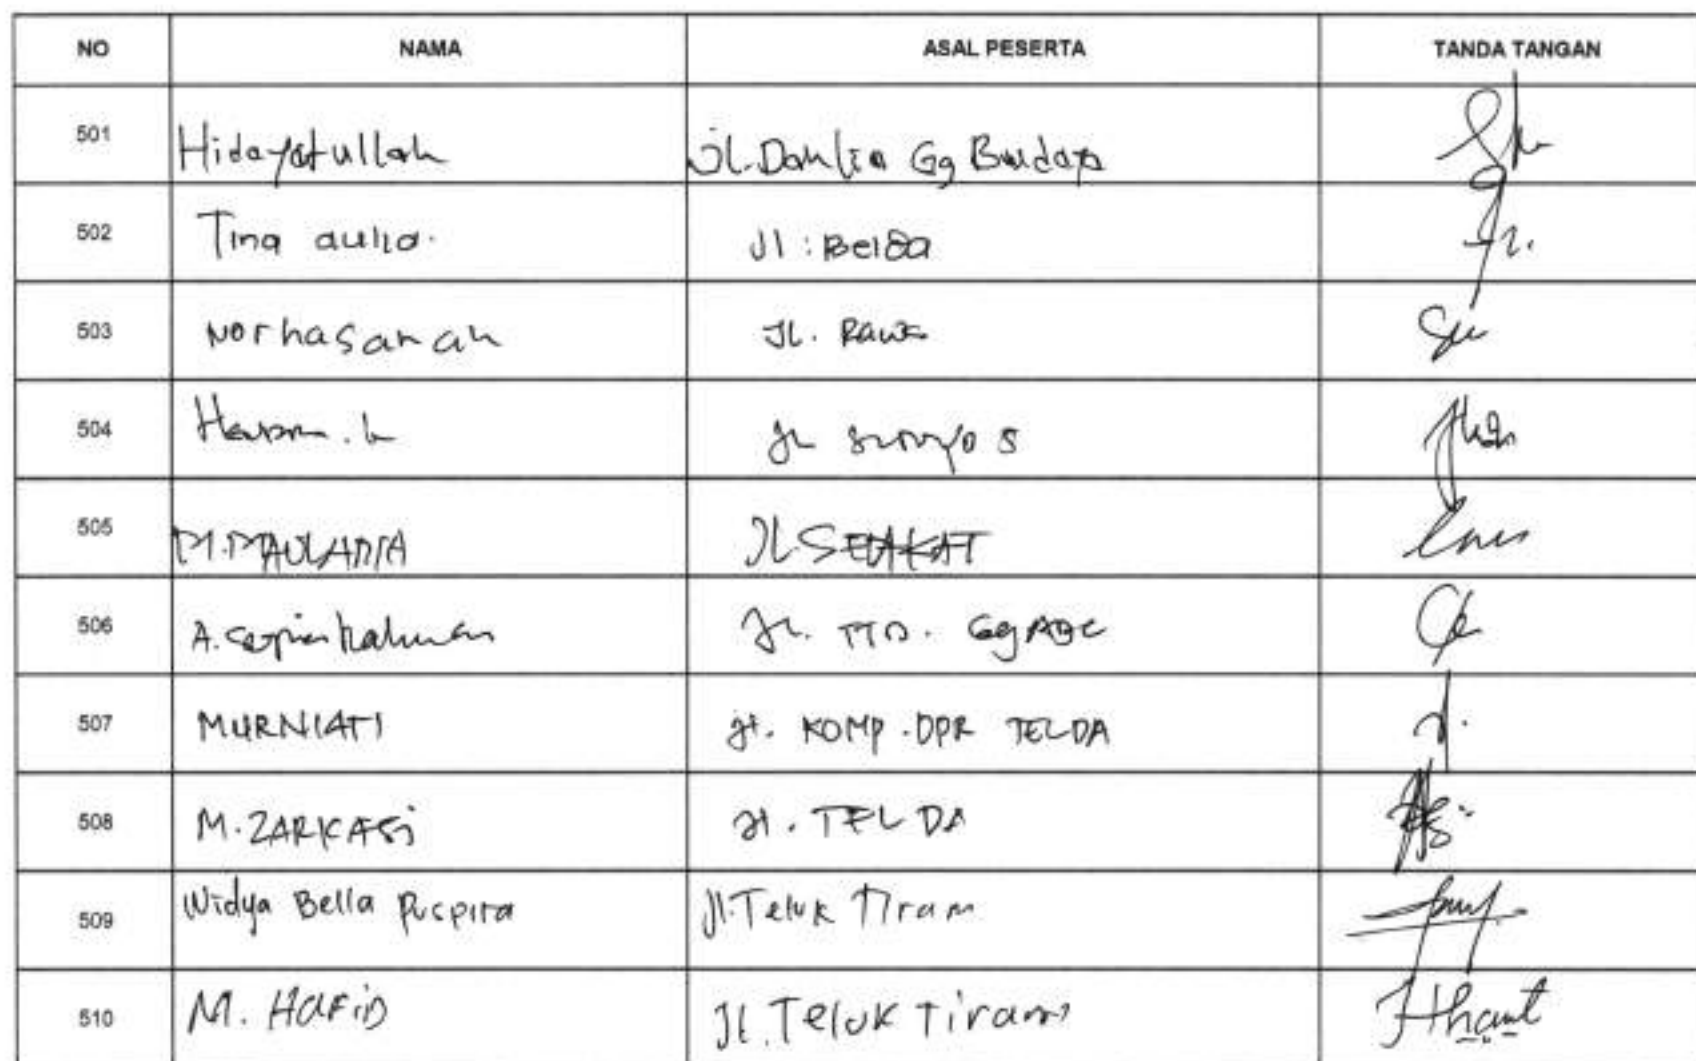 NO NAMA ASAL PESERTA TANDA TANGAN
501 Hidayatullah Jl. Dahlia Gg Budaya
502 Tina aulia. Jl : Belda
503 Norhasanah JL. Rawa
504 JL 5
505 M. MAULANA JL SEPAKAT
506 A. Jl. Gg ABC
507 MURNIATI Jl. KOMP. DPR TELDA
508 M. ZARKASi Jl. TELDA
509 Widya Bella Puspita Jl. Teluk Tiram
510 M. HAFiD Jl. Teluk Tiram